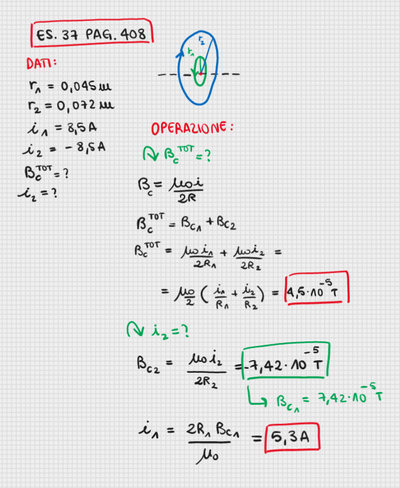 ES. 37 PAG. 408
DATI:
r₁ = 0,045 m
r₂ = 0,072 m
i₁ = 8,5 A
i₂ = -8,5 A
Bc^TOT = ?
i₂ = ?
r₁ r₂
OPERAZIONE:
Bc^TOT = ?
Bc = μ₀i / 2R
Bc^TOT = Bc₁ + Bc₂
Bc^TOT = μ₀i₁ / 2R₁ + μ₀i₂ / 2R₂ =
= μ₀/2 ( i₁/R₁ + i₂/R₂ ) = 4,5·10⁻⁵ T
i₂ = ?
Bc₂ = μ₀i₂ / 2R₂ = -7,42·10⁻⁵ T
Bc₁ = 7,42·10⁻⁵ T
i₁ = 2R₁ Bc₁ / μ₀ = 5,3 A